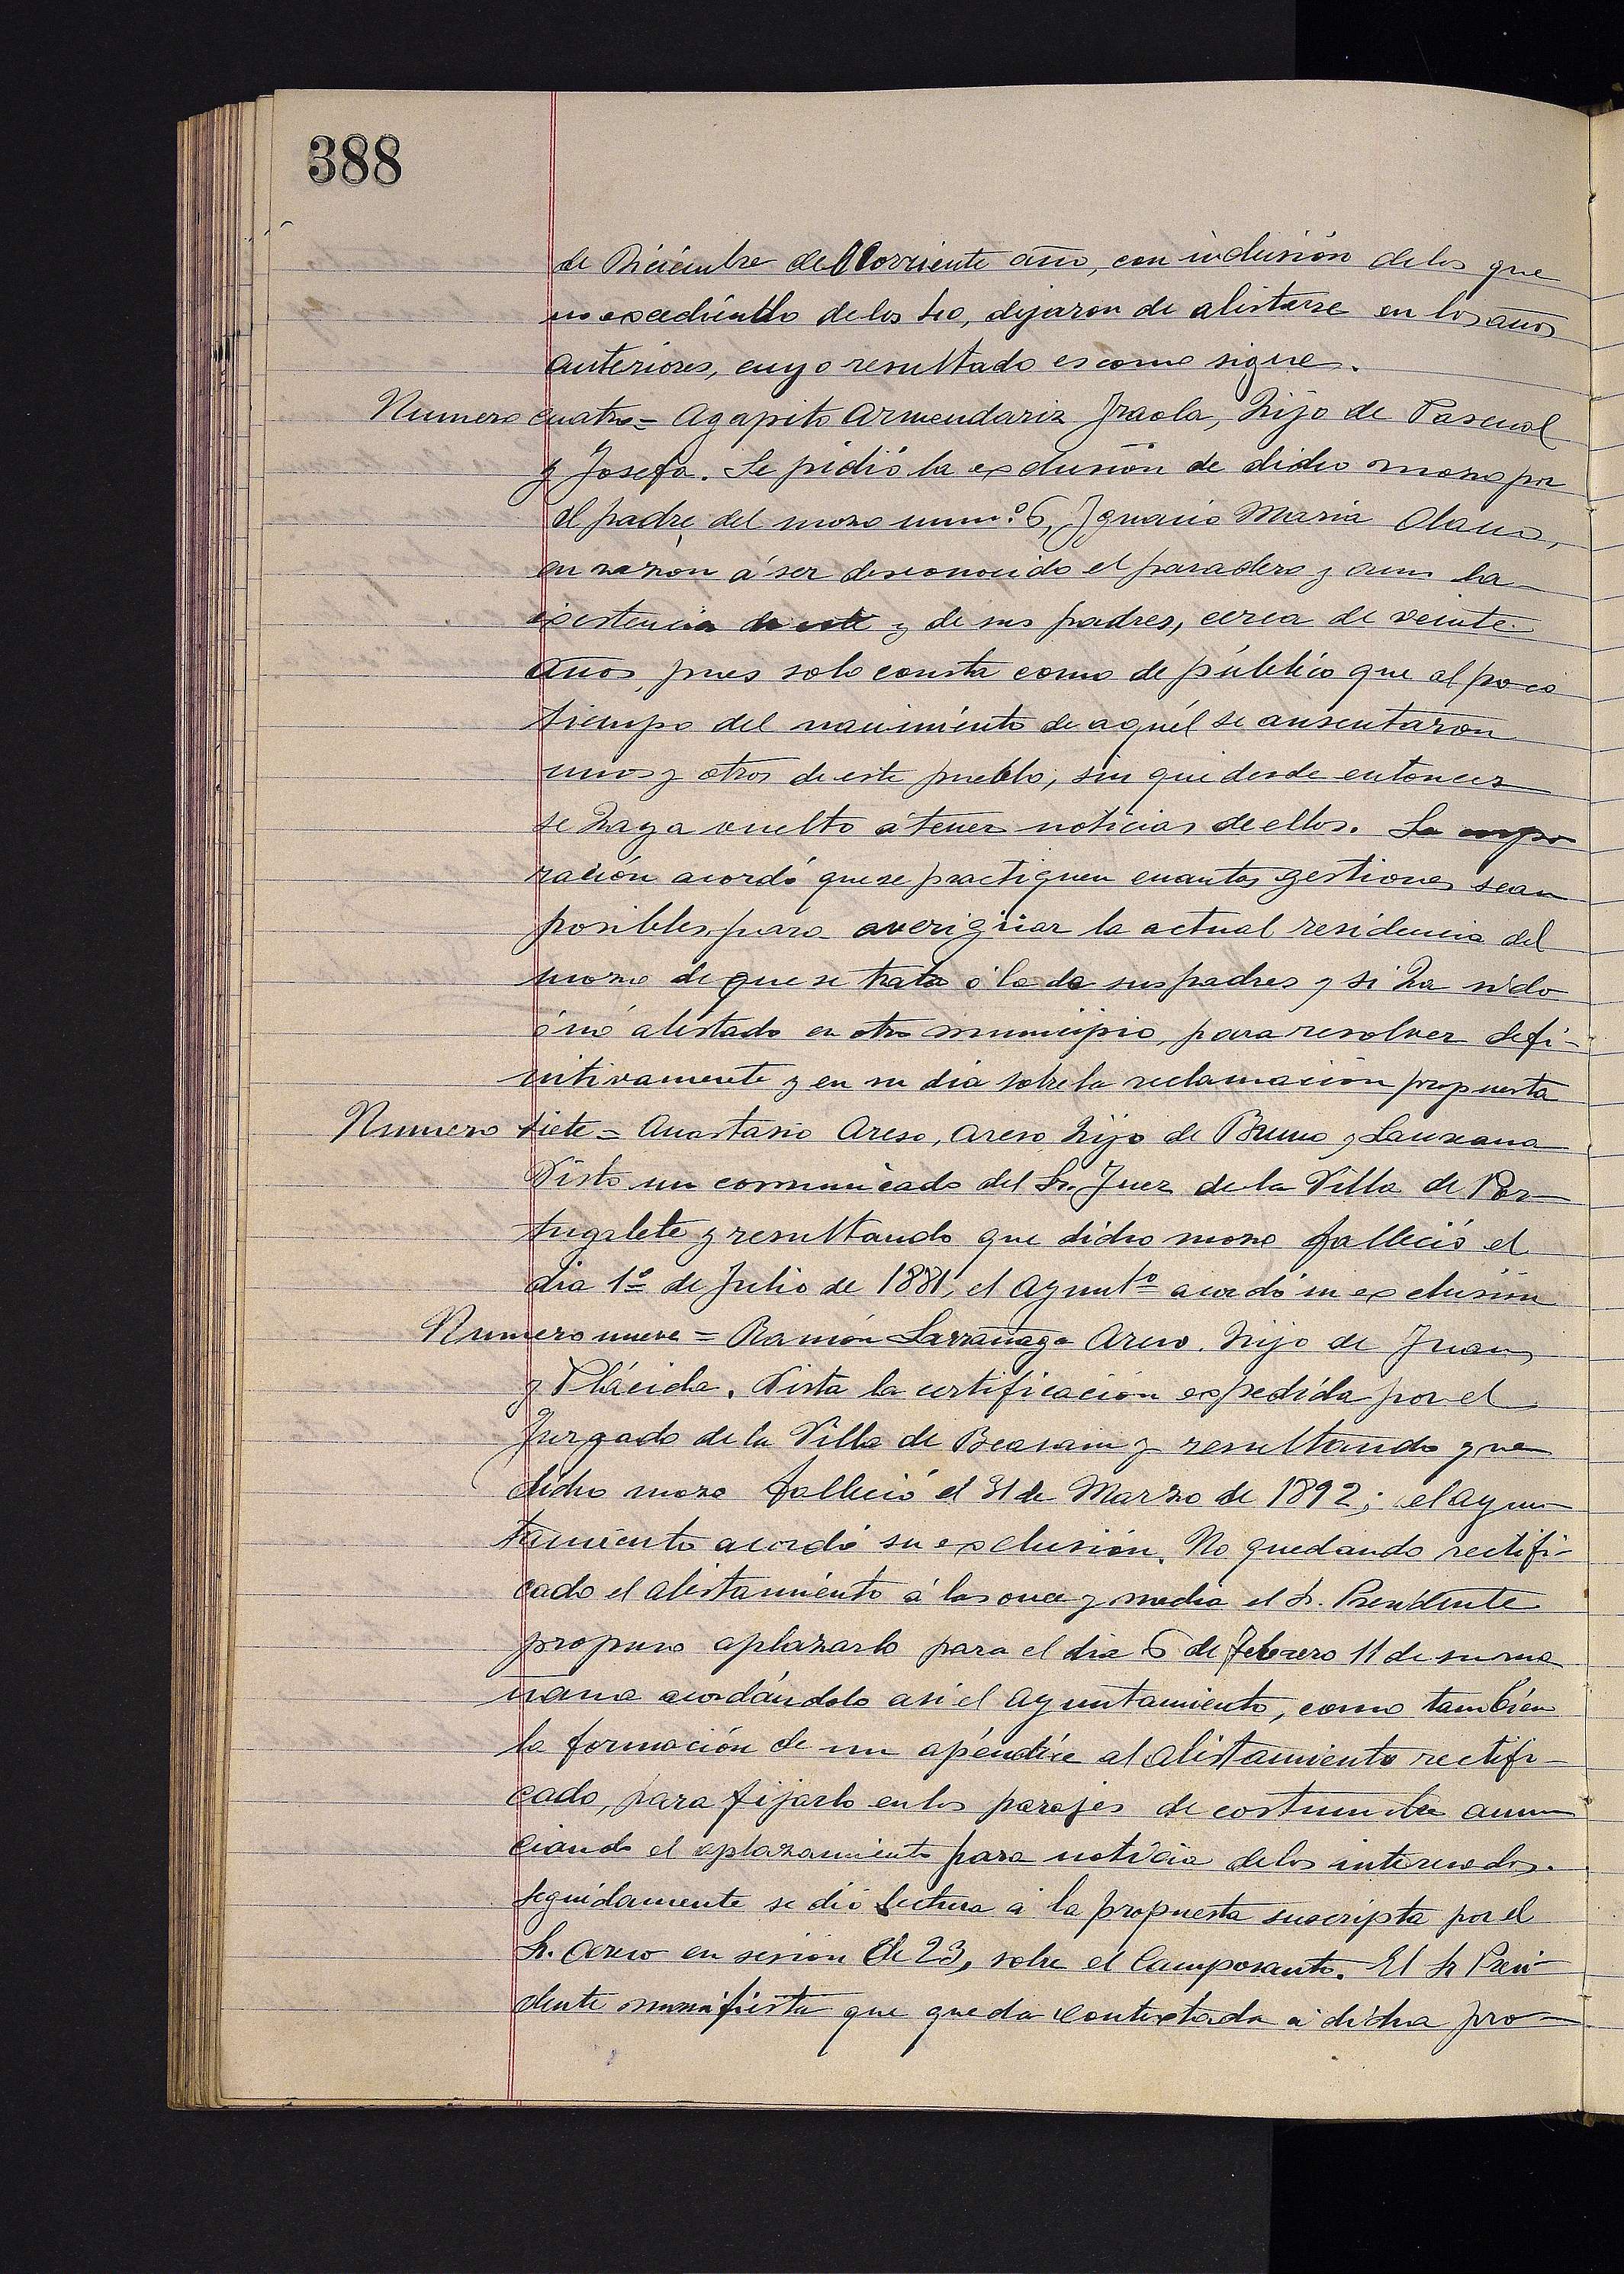 388
de Diciembre del Corriente año, con inclusión de los que
no excediendo de los 40, dejaron de alistarse en los años
anteriores, cuyo resultado es como sigue.
Numero cuatro = Agapito Armendariz Iraola, hijo de Pascual
y Josefa. Se pidió la exclusión de dicho mozo por
el padre del mozo num.º 6, Ignacio Maria Olano,
en razón á ser desconocido el paradero y aun la
existencia de este y de sus padres, cerca de veinte
años, pues solo consta como de público que al poco
tiempo del nacimiento de aquél se ausentaron
unos y otros de este pueblo, sin que desde entonces
se haya vuelto á tener noticias de ellos. La corpo
ración acordó que se practiquen cuantas gestiones sean
posibles para averigüar la actual residencia del
mozo de que se trata ó la de sus padres y si ha sido
ó nó alistado en otro municipio, para resolver defi-
nitivamente y en su dia sobre la reclamación propuesta
Numero siete = Anastasio Areso, Areso hijo de Bruno y Laureana
Visto un comunicado del Sr. Juez de la Villa de Por-
tugalete y resultando que dicho mozo falleció el
dia 1º de Julio de 1881, el Ayuntº acordó su exclusión
Numero nueve = Ramón Larrañaga Areso. hijo de Juan
y Plácida. Vista la certificación expedida por el
Juzgado de la Villa de Beasain y resultando que
dicho mozo falleció el 31 de Marzo de 1892; el ayun-
tamiento acordó su exclusión. No quedando rectifi-
cado el alistamiento á las once y media el Sr. Presidente
propuso aplazarlo para el dia 6 de febrero 11 de su ma
ñana acordándolo asi el Ayuntamiento, como tambien
la formación de un apéndice al alistamiento rectifi-
cado, para fijarlo en los parajes de costumbre anun
ciando el aplazamiento para noticia de los interesados.
Seguidamente se dió lectura á la propuesta suscripta por el
Sr. Areso en sesión de 23, sobre el Camposanto. El Sr Presi-
dente manifiesta que queda contextada á dicha pro-